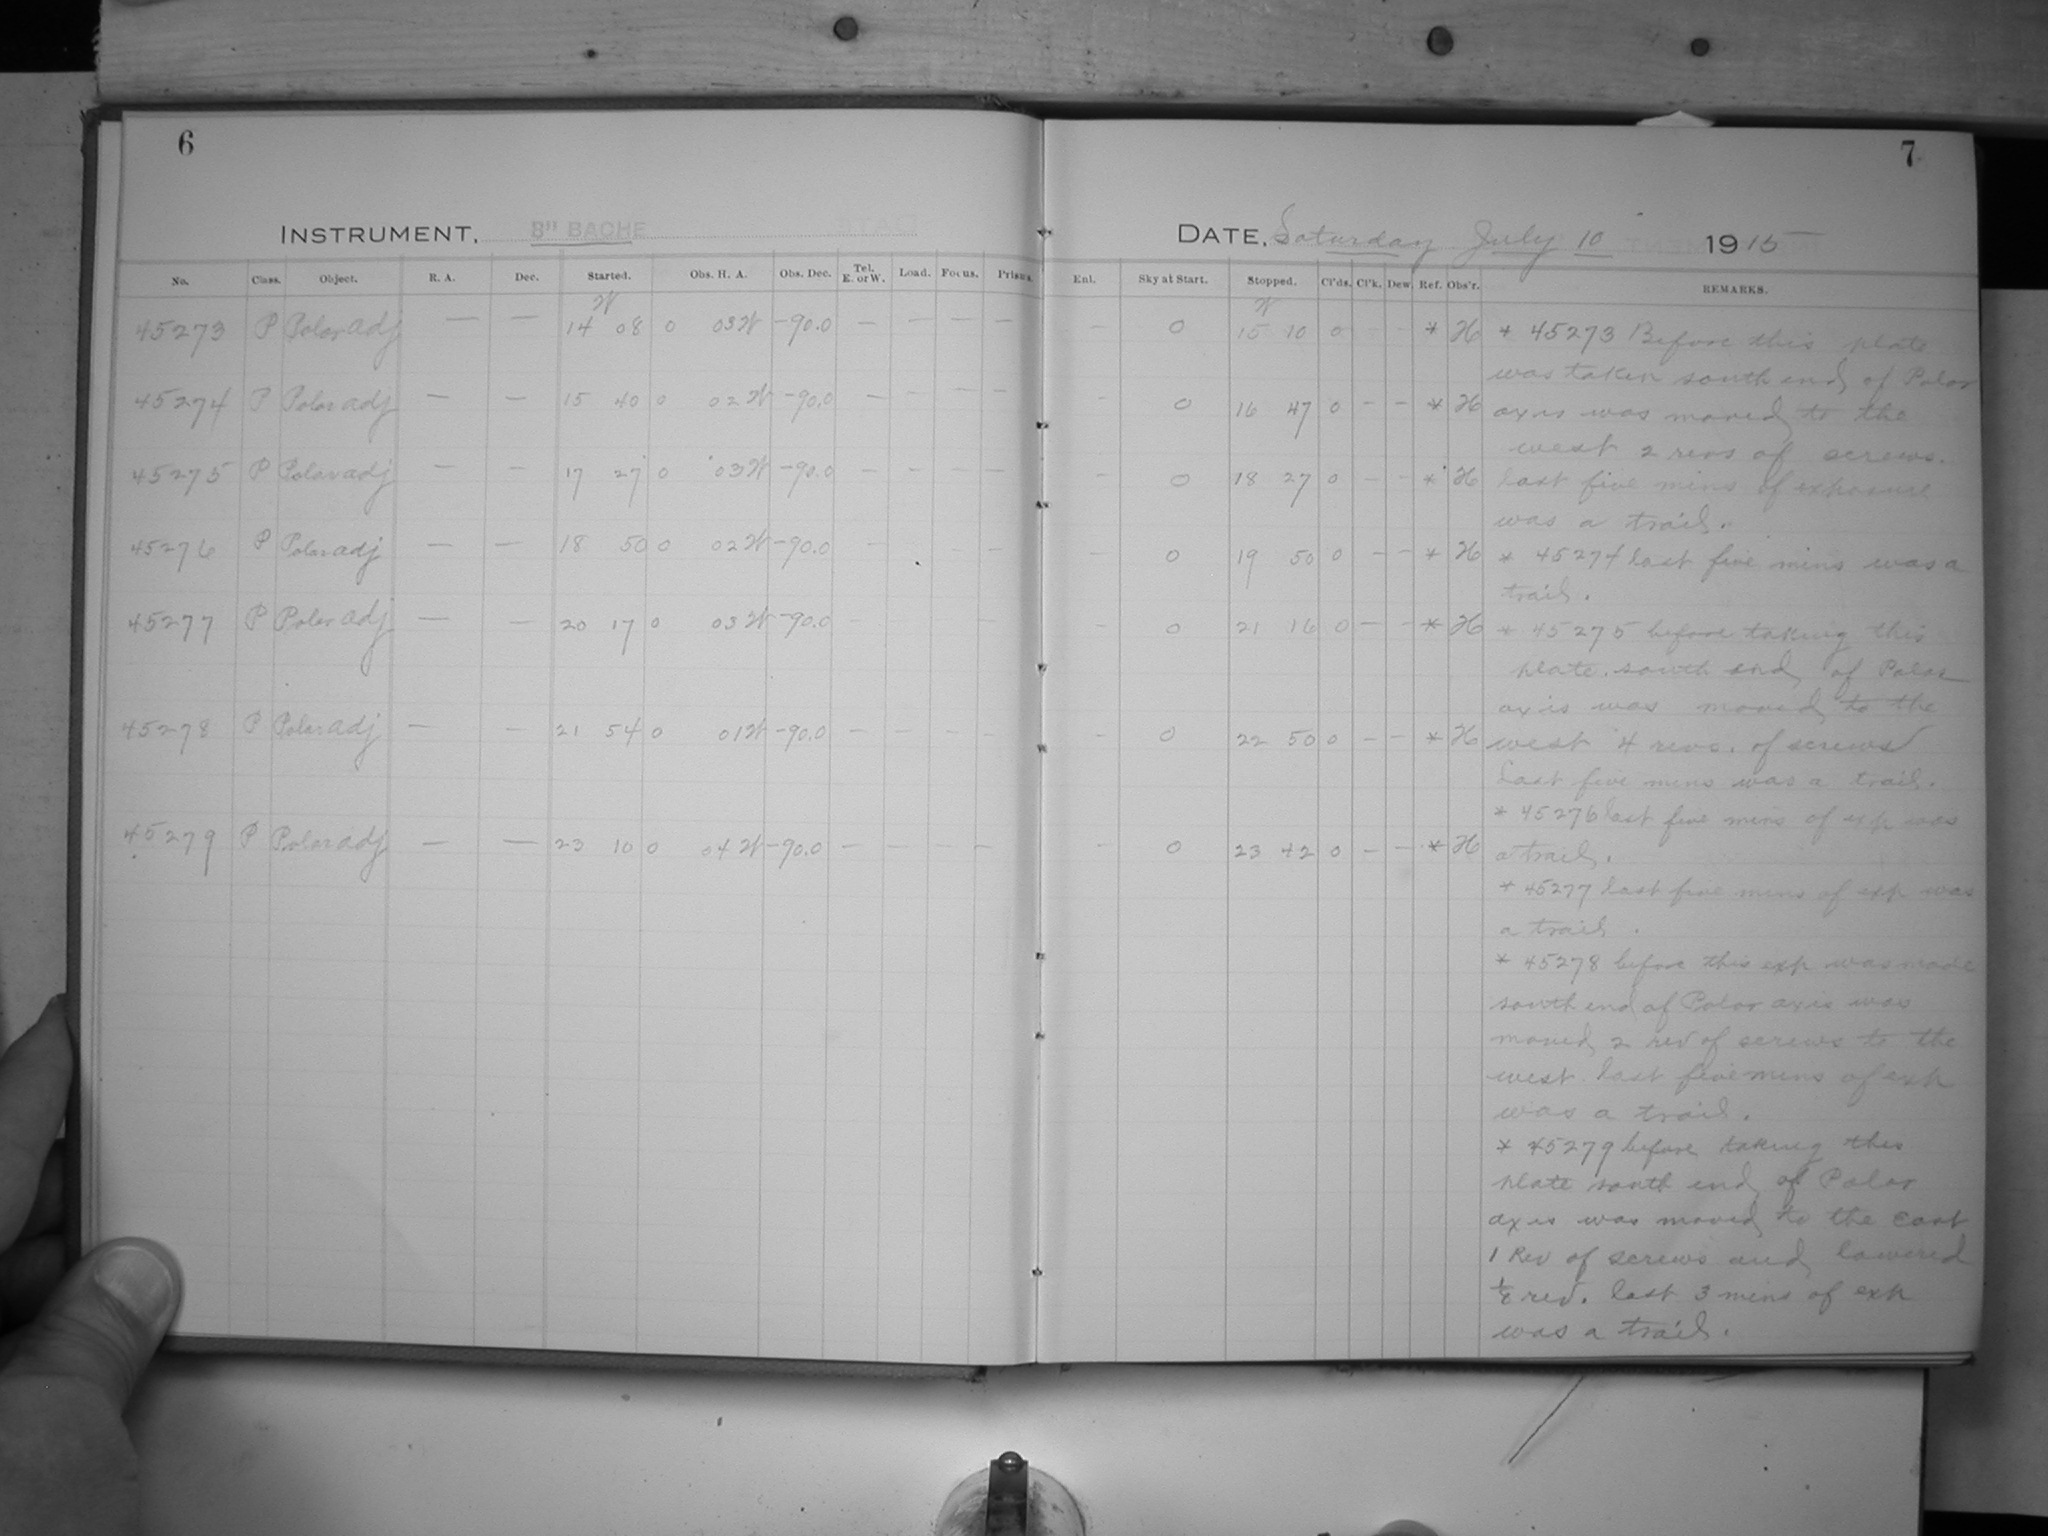 6
INSTRUMENT, 8" BACHE
No. Class. Object. R. A. Dec. Started. Obs. H. A. Obs. Dec. Tel. E. or W. Load. Focus. Prisms.
45273 P Polar adj — — 14 08 0 03W -90.0 — — — —
45274 P Polar adj — — 15 40 0 02W -90.0 — — — —
45275 P Polar adj — — 17 27 0 03W -90.0 — — — —
45276 P Polar adj — — 18 50 0 02W -90.0 — — —
45277 P Polar adj — — 20 17 0 03W -90.0 —
45278 P Polar adj — — 21 54 0 01W -90.0 — — — —
45279 P Polar adj — — 23 10 0 04W -90.0 — — — —
7
DATE, Saturday July 10 1915
Enl. Sky at Start. Stopped. Cl'ds. Cl'k. Dew Ref. Obs'r. REMARKS.
— 0 15 10 0 — * H
— 0 16 47 0 — — * H
— 0 18 27 0 — — * H
— 0 19 50 0 — — * H
— 0 21 16 0 — — * H
— 0 22 50 0 — — * H
— 0 23 42 0 — — * H
* 45273 Before this plate
was taken south end of Polar
axis was moved to the
west 2 revs of screws.
last five mins of exposure
was a trail.
* 45274 last five mins was a
trail.
* 45275 before taking this
plate south end of Polar
axis was moved to the
west 4 revs. of screws
last five mins was a trail.
* 45276 last five mins of exp was
a trail.
* 45277 last five mins of exp was
a trail.
* 45278 before this exp was made
south end of Polar axis was
moved 2 rev of screws to the
west. last five mins of exp
was a trail.
* 45279 before taking this
plate south end of Polar
axis was moved to the East
1 Rev of screws and lowered
rev. last 3 mins of exp
was a trail.